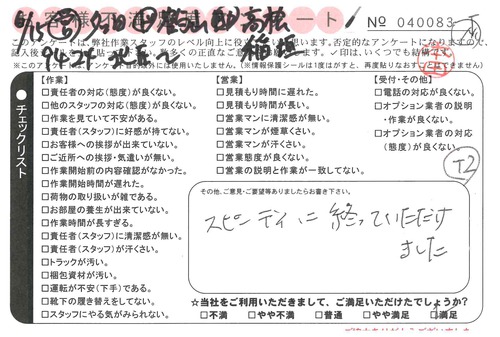 お客様不満度アンケート No 040083
このアンケートは、弊社作業スタッフのレベル向上に役立
います。否定的なアンケートになりますので、
記入後
✓印は、いくつでも結構です。
【作業】
□責任者の対応(態度)が良くない。
□他のスタッフの対応(態度)が良くない。
□作業を見ていて不安がある。
□責任者(スタッフ)に好感が持てない。
□お客様への挨拶が出来ていない。
□ご近所への挨拶・気遣いが無い。
□作業開始前の内容確認がなかった。
□作業開始時間が遅れた。
□荷物の取り扱いが雑である。
□お部屋の養生が出来ていない。
□作業時間が長すぎる。
□責任者(スタッフ)に清潔感が無い。
□責任者(スタッフ)が汗くさい。
□トラックが汚い。
□梱包資材が汚い。
□運転が不安(下手)である。
□靴下の履き替えをしてない。
□スタッフにやる気がみられない。
【営業】
□見積もり時間に遅れた。
□見積もり時間が長い。
□営業マンに清潔感が無い。
□営業マンが煙草くさい。
□営業マンが汗くさい。
□営業態度が良くない。
□営業の説明と作業が一致してない。
【受付・その他】
□電話の対応が良くない。
□オプション業者の説明
・作業が良くない。
□オプション業者の対応
(態度)が良くない。
チェックリスト
T2
その他、ご意見・ご要望等ありましたらお書き下さい。
スピーディに終っていただけ
ました
☆当社をご利用いただきまして、ご満足いただけたでしょうか?
□不満 □やや不満 □普通 □やや満足 □満足